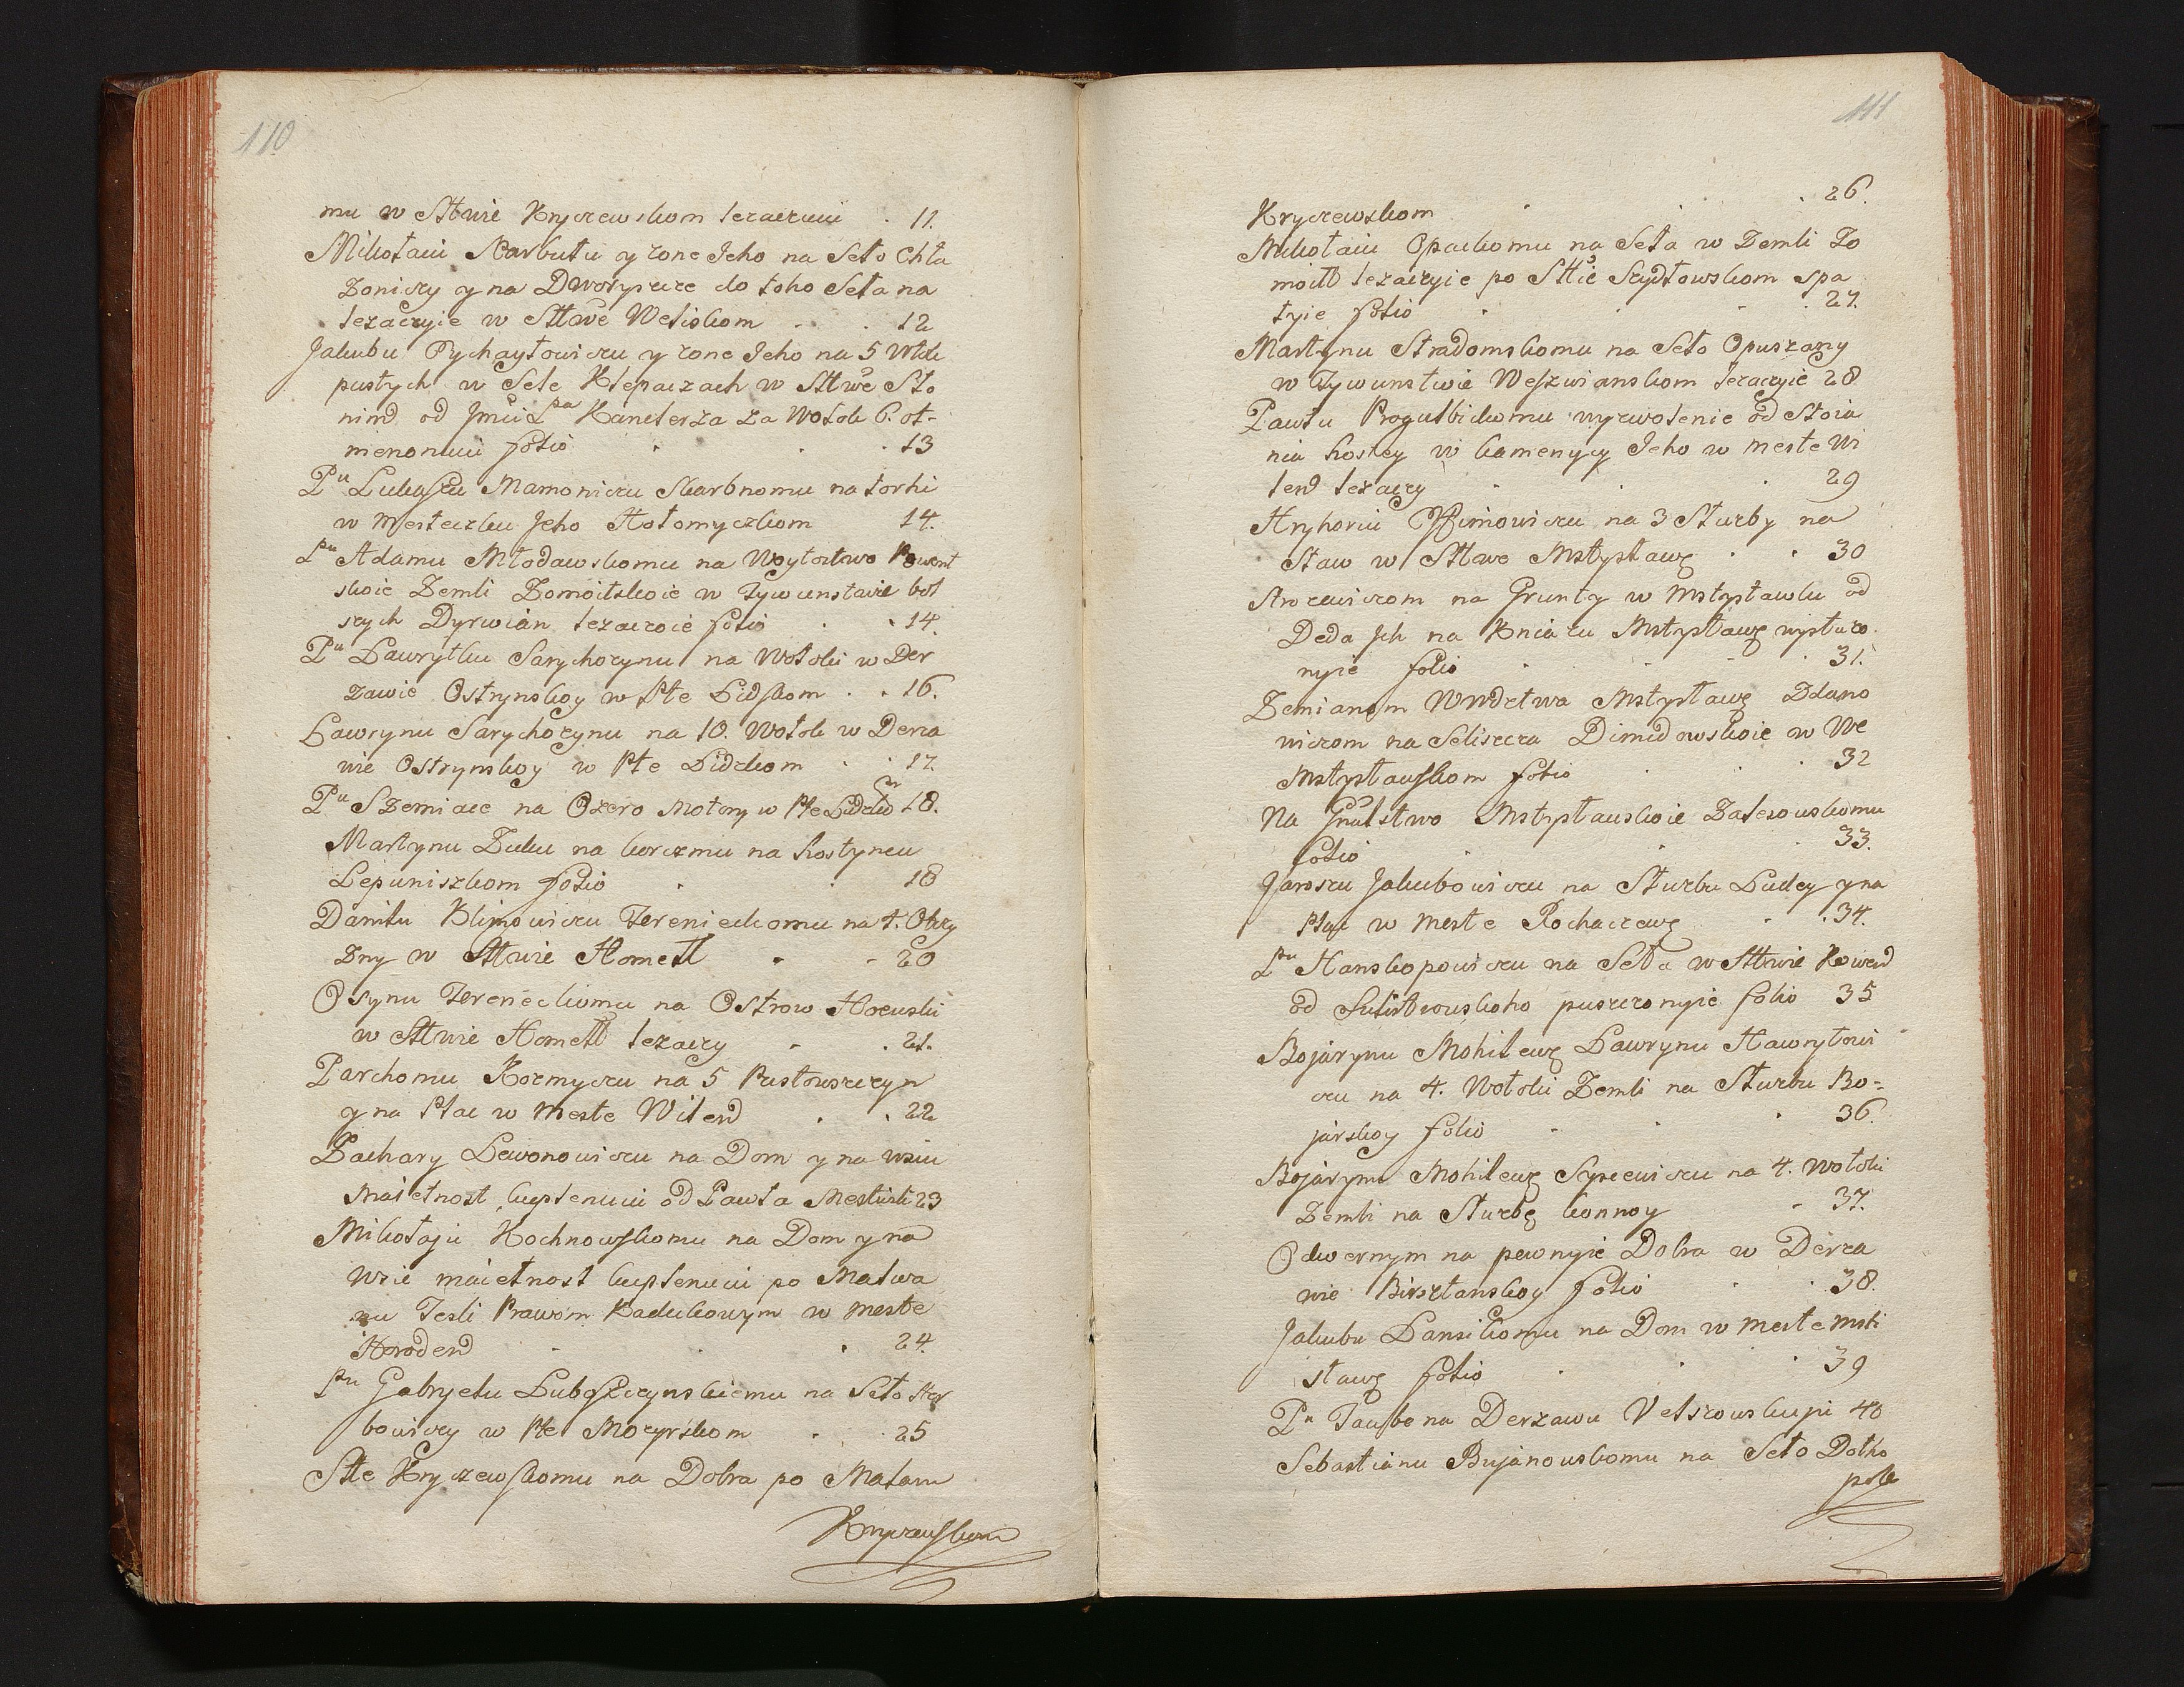 110
mu w Sttwie Kryczewskom lezaczuiu . 11.
Mikołaiu Narbutu y zone Jeho na Seło Chła
Zoniczy y na Dworyszcze do toho Seła na
lezaczyie w Sttwe Weliskom . . 12
Jakubu Pychayłowiczu y zone Jeho na 5 Włok
pustych w Sele Klepaczach w Sttwe Sło
nimd od Jmći Pna Kanclerza za Wołok 6. ot-
mienonuiu folio . . . 13
Pu Lukaszu Mamoniczu Skarbnomu na torhi
w Mesteczku Jeho Hołomyczkom 14.
Pu Adamu Młodawskomu na Woytostwo Powent
skoie Zemli Zomoitskoie w Tywunstwie bol
szych Dyrwian lezaczoie folio . . 14.
Pu Ławrytku Sarychozynu na Wołoki w Der
zawie Ostrynskoy w Pte Lidskom . . 16.
Ławrynu Sarychozynu na 10. Wołok w Derza
wie Ostrynskoy w Pte Lidzkom . . 17.
Pu Szemiace na Ozero Motory w Pte Lidzkom 18.
Martynu Żuku na korczmu na hostyncu
Lepuniszkom folio . . 18
Daniłu Klimowiczu Tereneckomu na 4. Obry
Zny w Sttwie Homełł . . 20
Osynu Tereneckomu na Ostrow Hoewski
w Sttwie Homełł lezaczy . . 21.
Parchomu Kozmyczu na 5 Pustowszczyn
y na Plac w Meste Witend . . 22
Zachary Lewonowiczu na Dom y na wsiu
Maietnost kuplenuiu od Pawła Mestiuski 23
Mikołaju Kochnowskomu na Dom y na
wsie maietnost kuplenuiu po Matwa
zu Tesli Prawom Kadukowym w meste
Horodend . . . 24.
Pu Gabryelu Lubaszczynskiemu na Seło Hor
bowiczy w Pte Mozyrskom . . 25
Stte Kryczewskomu na Dobra po Matam
Kryczewskom
111
Kryczewskom . . . 26.
Mikołaiu Opackomu na Seła w Zemli Zo
moitt lezaczyie po Sttie Szydłowskom spa
łyie folio . . . 27.
Martynu Stradomskomu na Seło Opuszany
w Tywunstwie Weszwianskom lezaczyie 28
Pawłu Progulbickomu wyzwolenie od Stoia
nia hostey w kamenycy Jeho w meste Wi
lend lezaczy . . 29
Hryhoriu Jefimowiczu na 3 Słuzby na
Staw w Sttwe Mstysławʒ . . 30
Strozewiczom na Grunty w Mstysławlu od
Deda Jch na Kniazu Mstysławʒ wysłuzo
nyie folio . . . 31.
Zemianom Wwdztwa Mstysławʒ Zdano
wiczom na Seliszcza Dimidowskoie w We
Mstysławskom folio . . 32
Na Jnatstwo Mstysławskoie Zalesowskomu
folio . . . 33.
Jaroszu Jakubowiczu na Słuzbu Ludey y na
Plac w meste Rochaczewʒ . . 34.
Pu Hanskopowiczu na Seła w Sttwie Kowend
od Sulistrowskoho puszczonyie folio 35
Bojarynu Mohilewʒ Ławrynu Hawryłowi
czu na 4. Wołoki Zemli na Słuzbu Bo-
jarskoy folio . . . 36.
Bojarynu Mohilewʒ Sysiewiczu na 4. wołoki
Zemli na Słuzbę konnoy . 37.
Odwernym na pewnyie Dobra w Derza
wie Birsztanskoy folio . . 38.
Jakubu Lansikomu na Dom w meste Msti
sławʒ folio . . . 39
Pu Taubena Derzawu Velszowskupi 40
Sebastianu Bujanowskomu na Seło Dołho
pole